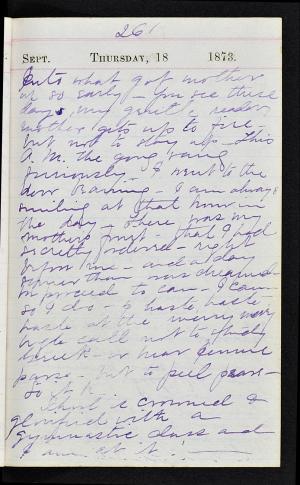 261
SEPT. THURSDAY, 18 1873.
what got mother
up so early — You see these
days, my gentle reader,
mother gets up to fire —
but not to stay up — This
A. M. the gong rang
furiously — I went to the
door — I am always
smiling at that hour in
the day — there was my
mother's that I had
secretly ordered — right
before me — and a day
sooner than was dreamed —
proceed to can — I can —
so I do — haste, haste —
haste at the merry merry
call not to study
Greek — or hear
parse — but to peel pears —
So it is
that is crowned &
glorified with a
gymnastic class and
I am at it. —